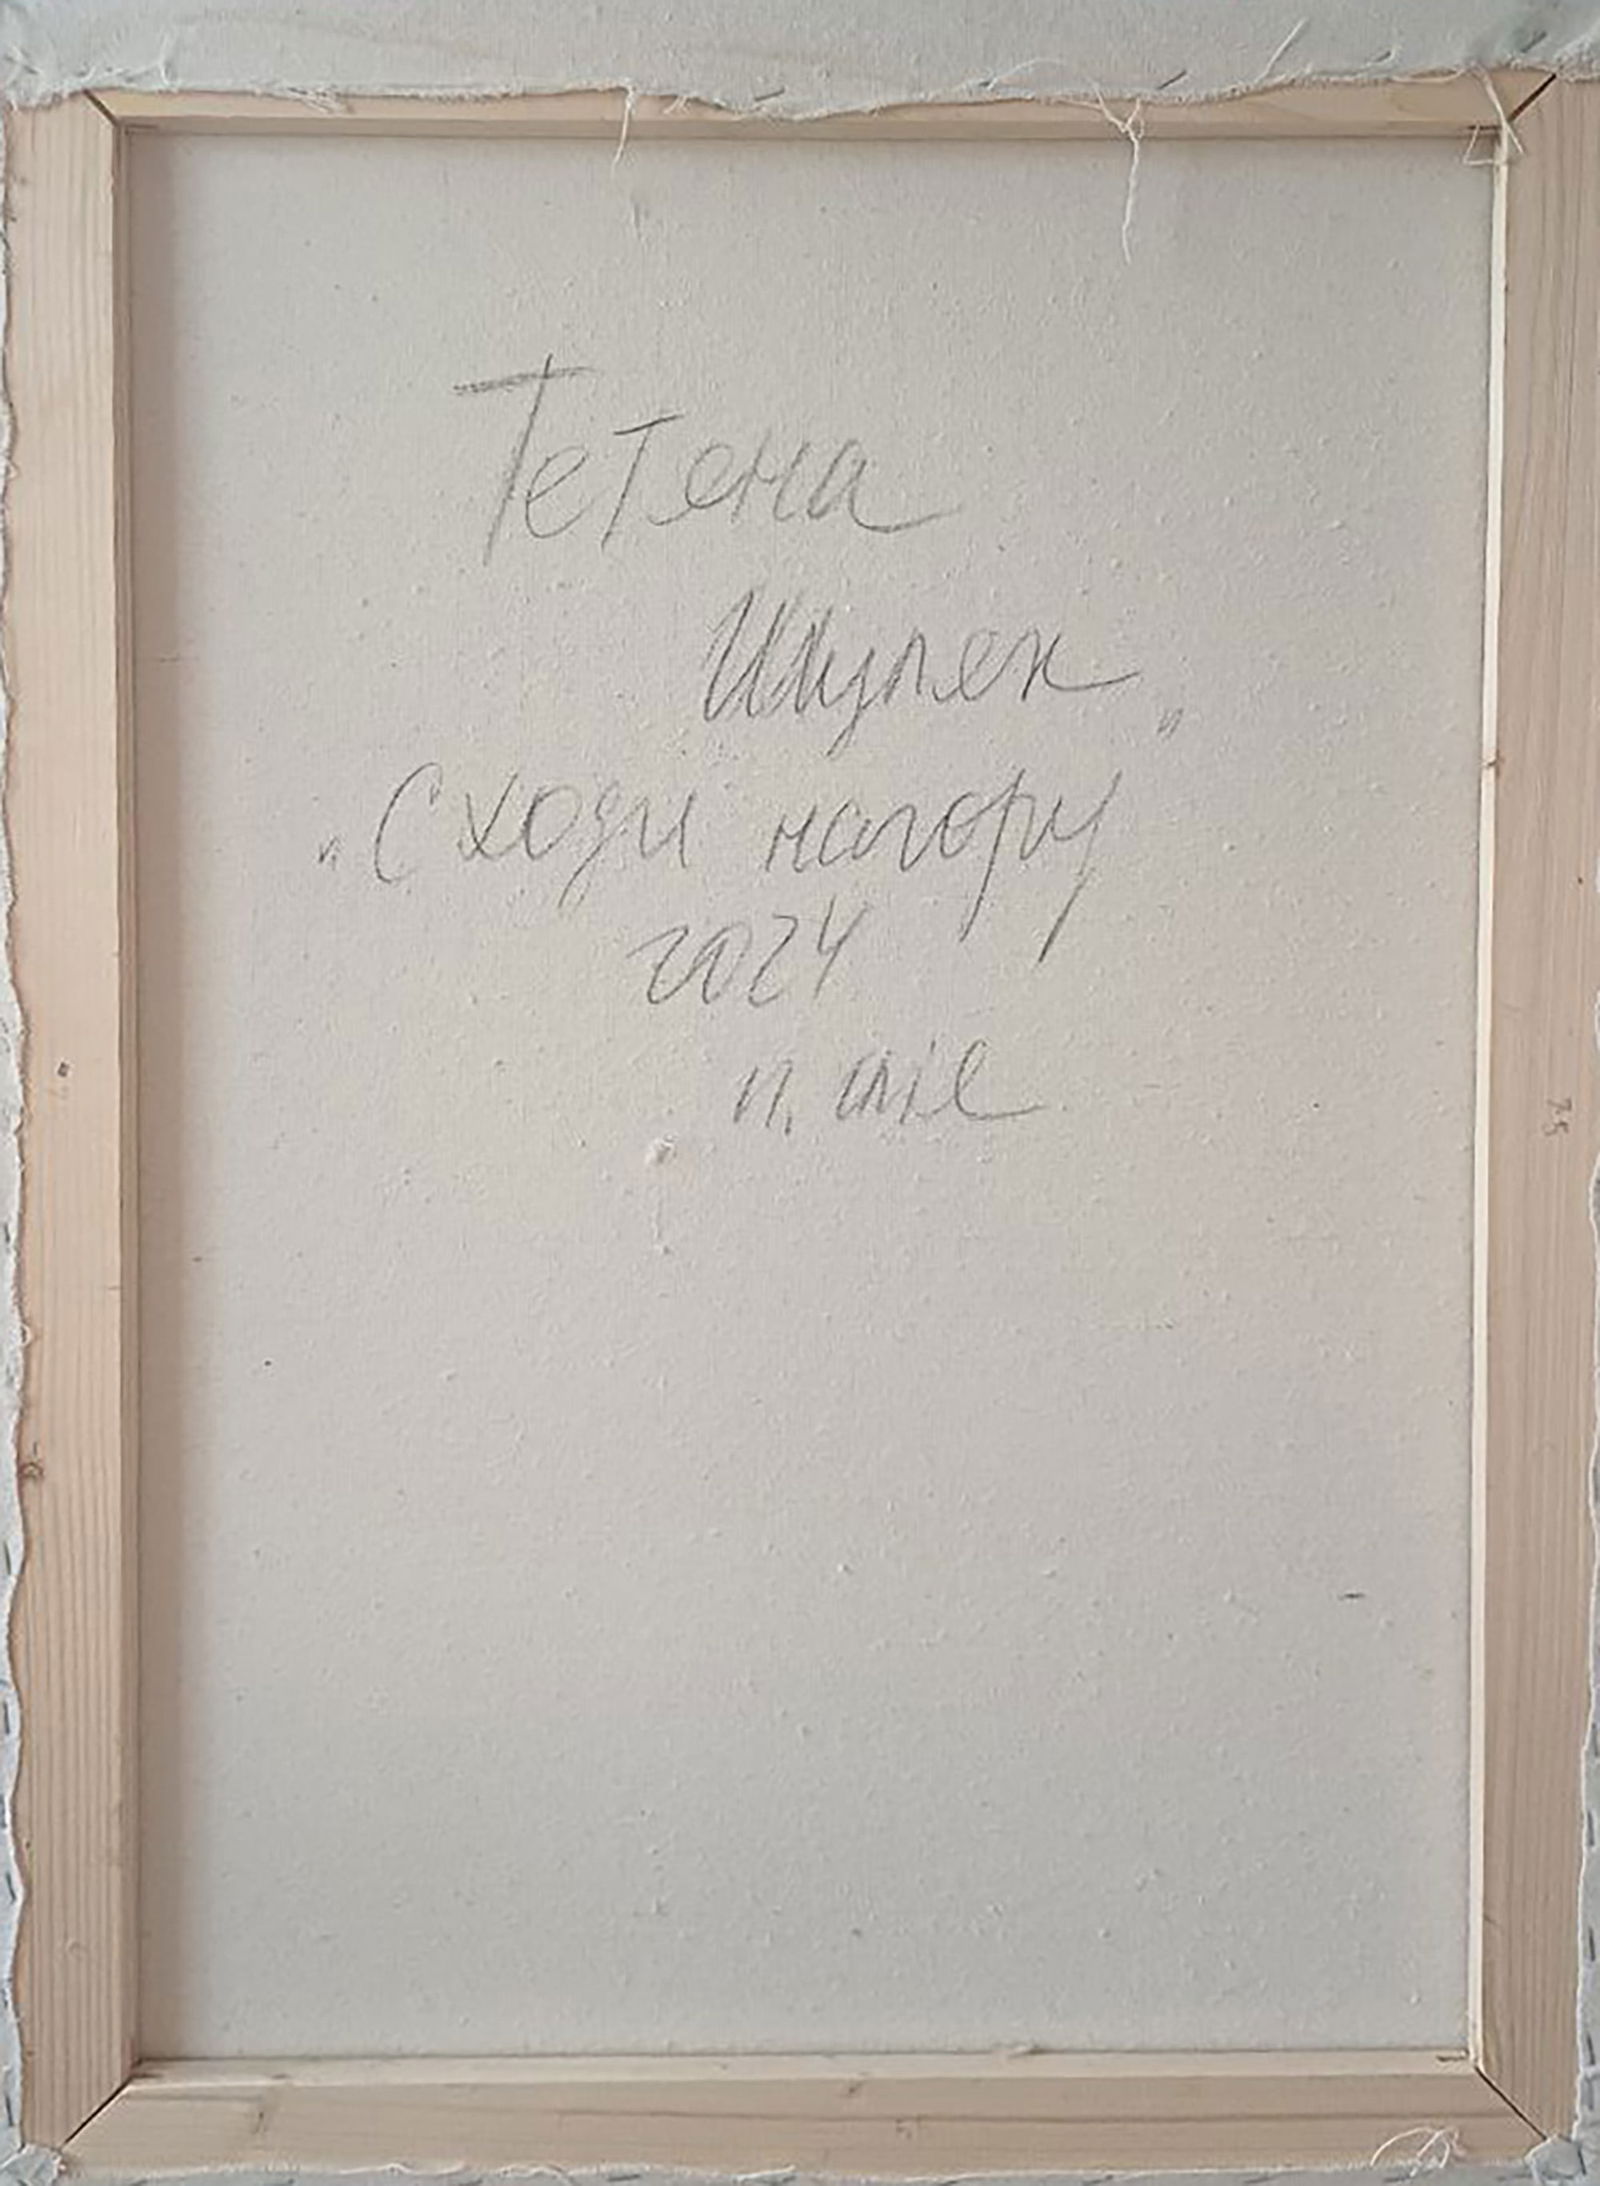 Тетяна
Шулек
"Сходи нагору"
2024
п. олія
25